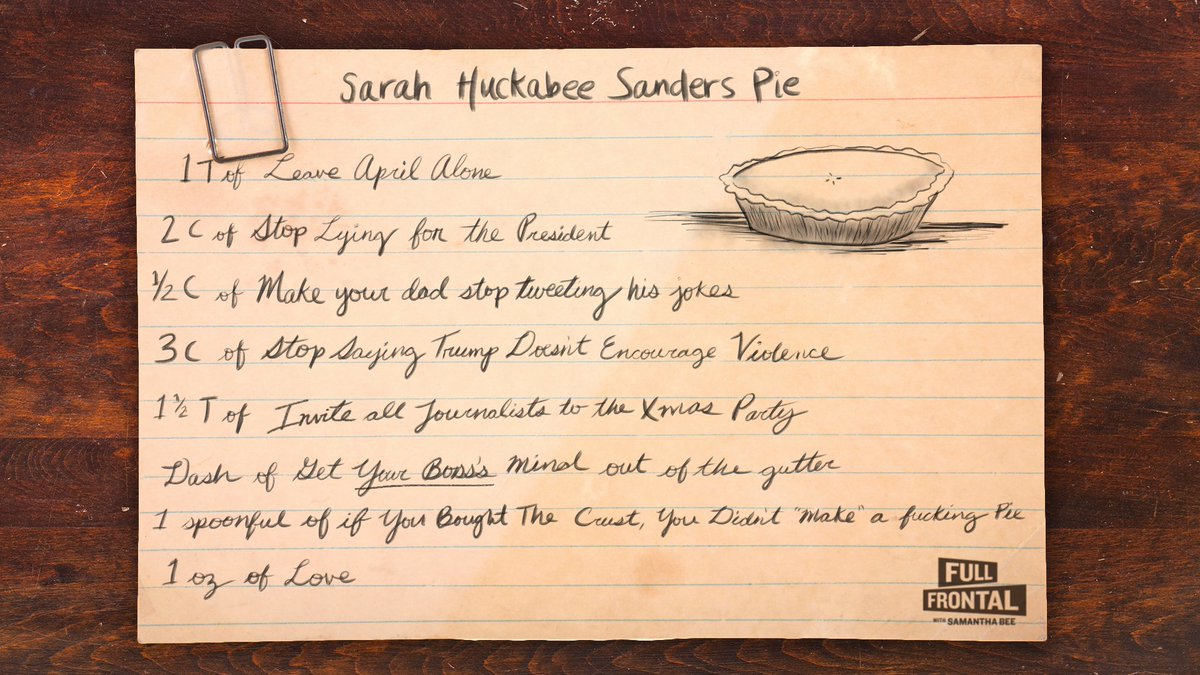 Sarah Huckabee Sanders Pie
1 T of Leave April Alone
2 C of Stop Lying for the President
1/2 C of Make your dad stop tweeting his jokes
3 C of Stop Saying Trump Doesn't Encourage Violence
1 1/2 T of Invite all Journalists to the Xmas Party
Dash of Get Your Boss's Mind out of the gutter
1 spoonful of if You Bought The Crust, You Didn't "Make" a fucking Pie
1 oz of Love
FULL
FRONTAL
WITH SAMANTHA BEE